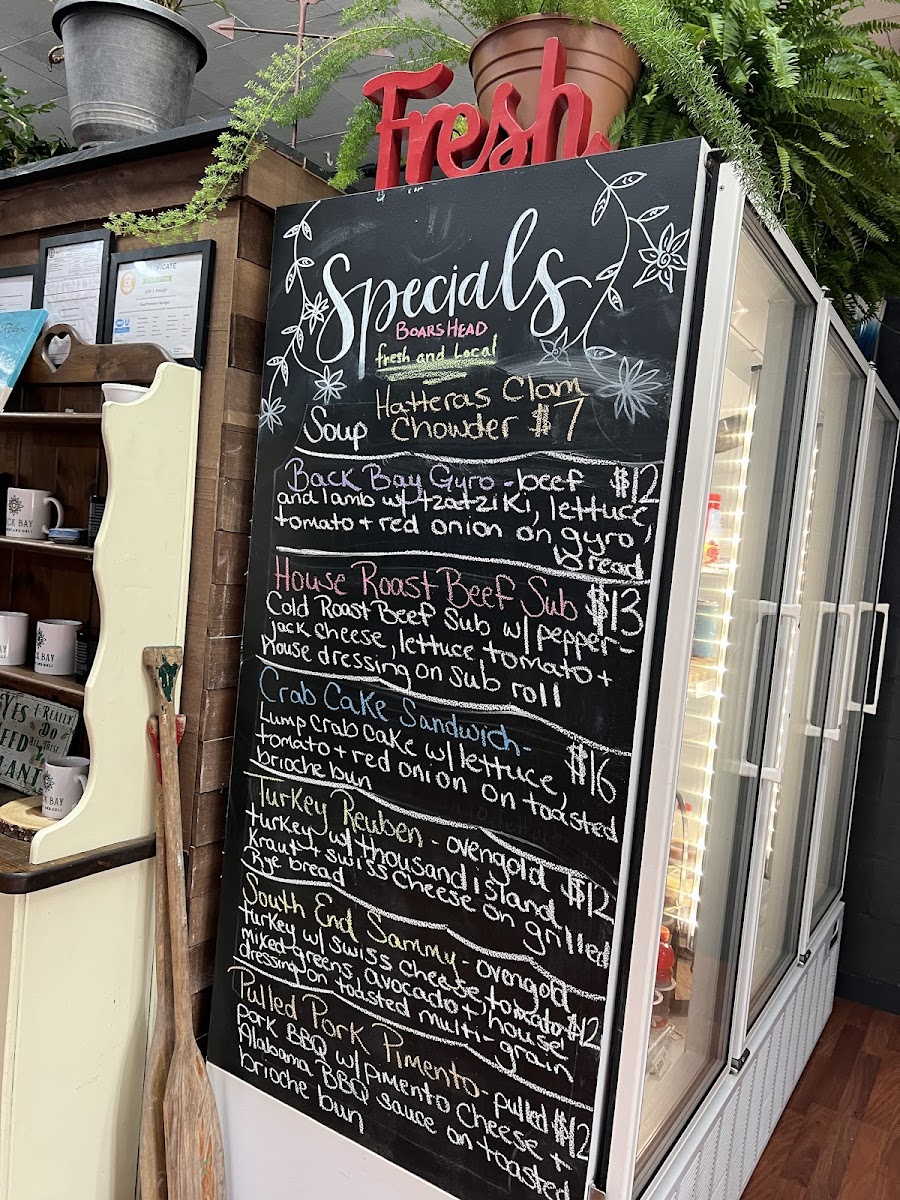 Fresh
Specials
BOARS HEAD
fresh and Local
Hatteras Clam
Soup Chowder $7
Back Bay Gyro - beef $12
and lamb w/ tzatziki, lettuce
tomato + red onion on gyro
bread
House Roast Beef Sub $13
Cold Roast Beef Sub w/ pepper-
jack cheese, lettuce tomato +
house dressing on sub roll
Crab Cake Sandwich - $16
Lump crab cake w/ lettuce,
tomato + red onion on toasted
brioche bun
Turkey Reuben - ovengold $12
turkey w/ thousand island
kraut + swiss cheese on grilled
Rye bread
South End Sammy - ovengold
turkey w/ swiss cheese, tomato $12
mixed greens, avocado + house
dressing on toasted multi-grain
Pulled Pork Pimento - pulled $12
pork BBQ w/ pimento cheese +
Alabama BBQ sauce on toasted
brioche bun
CERTIFICATE
Relax
CK BAY
CK BAY
YES I REALLY
DO
NEED ALL THESE
PLANTS
CK BAY